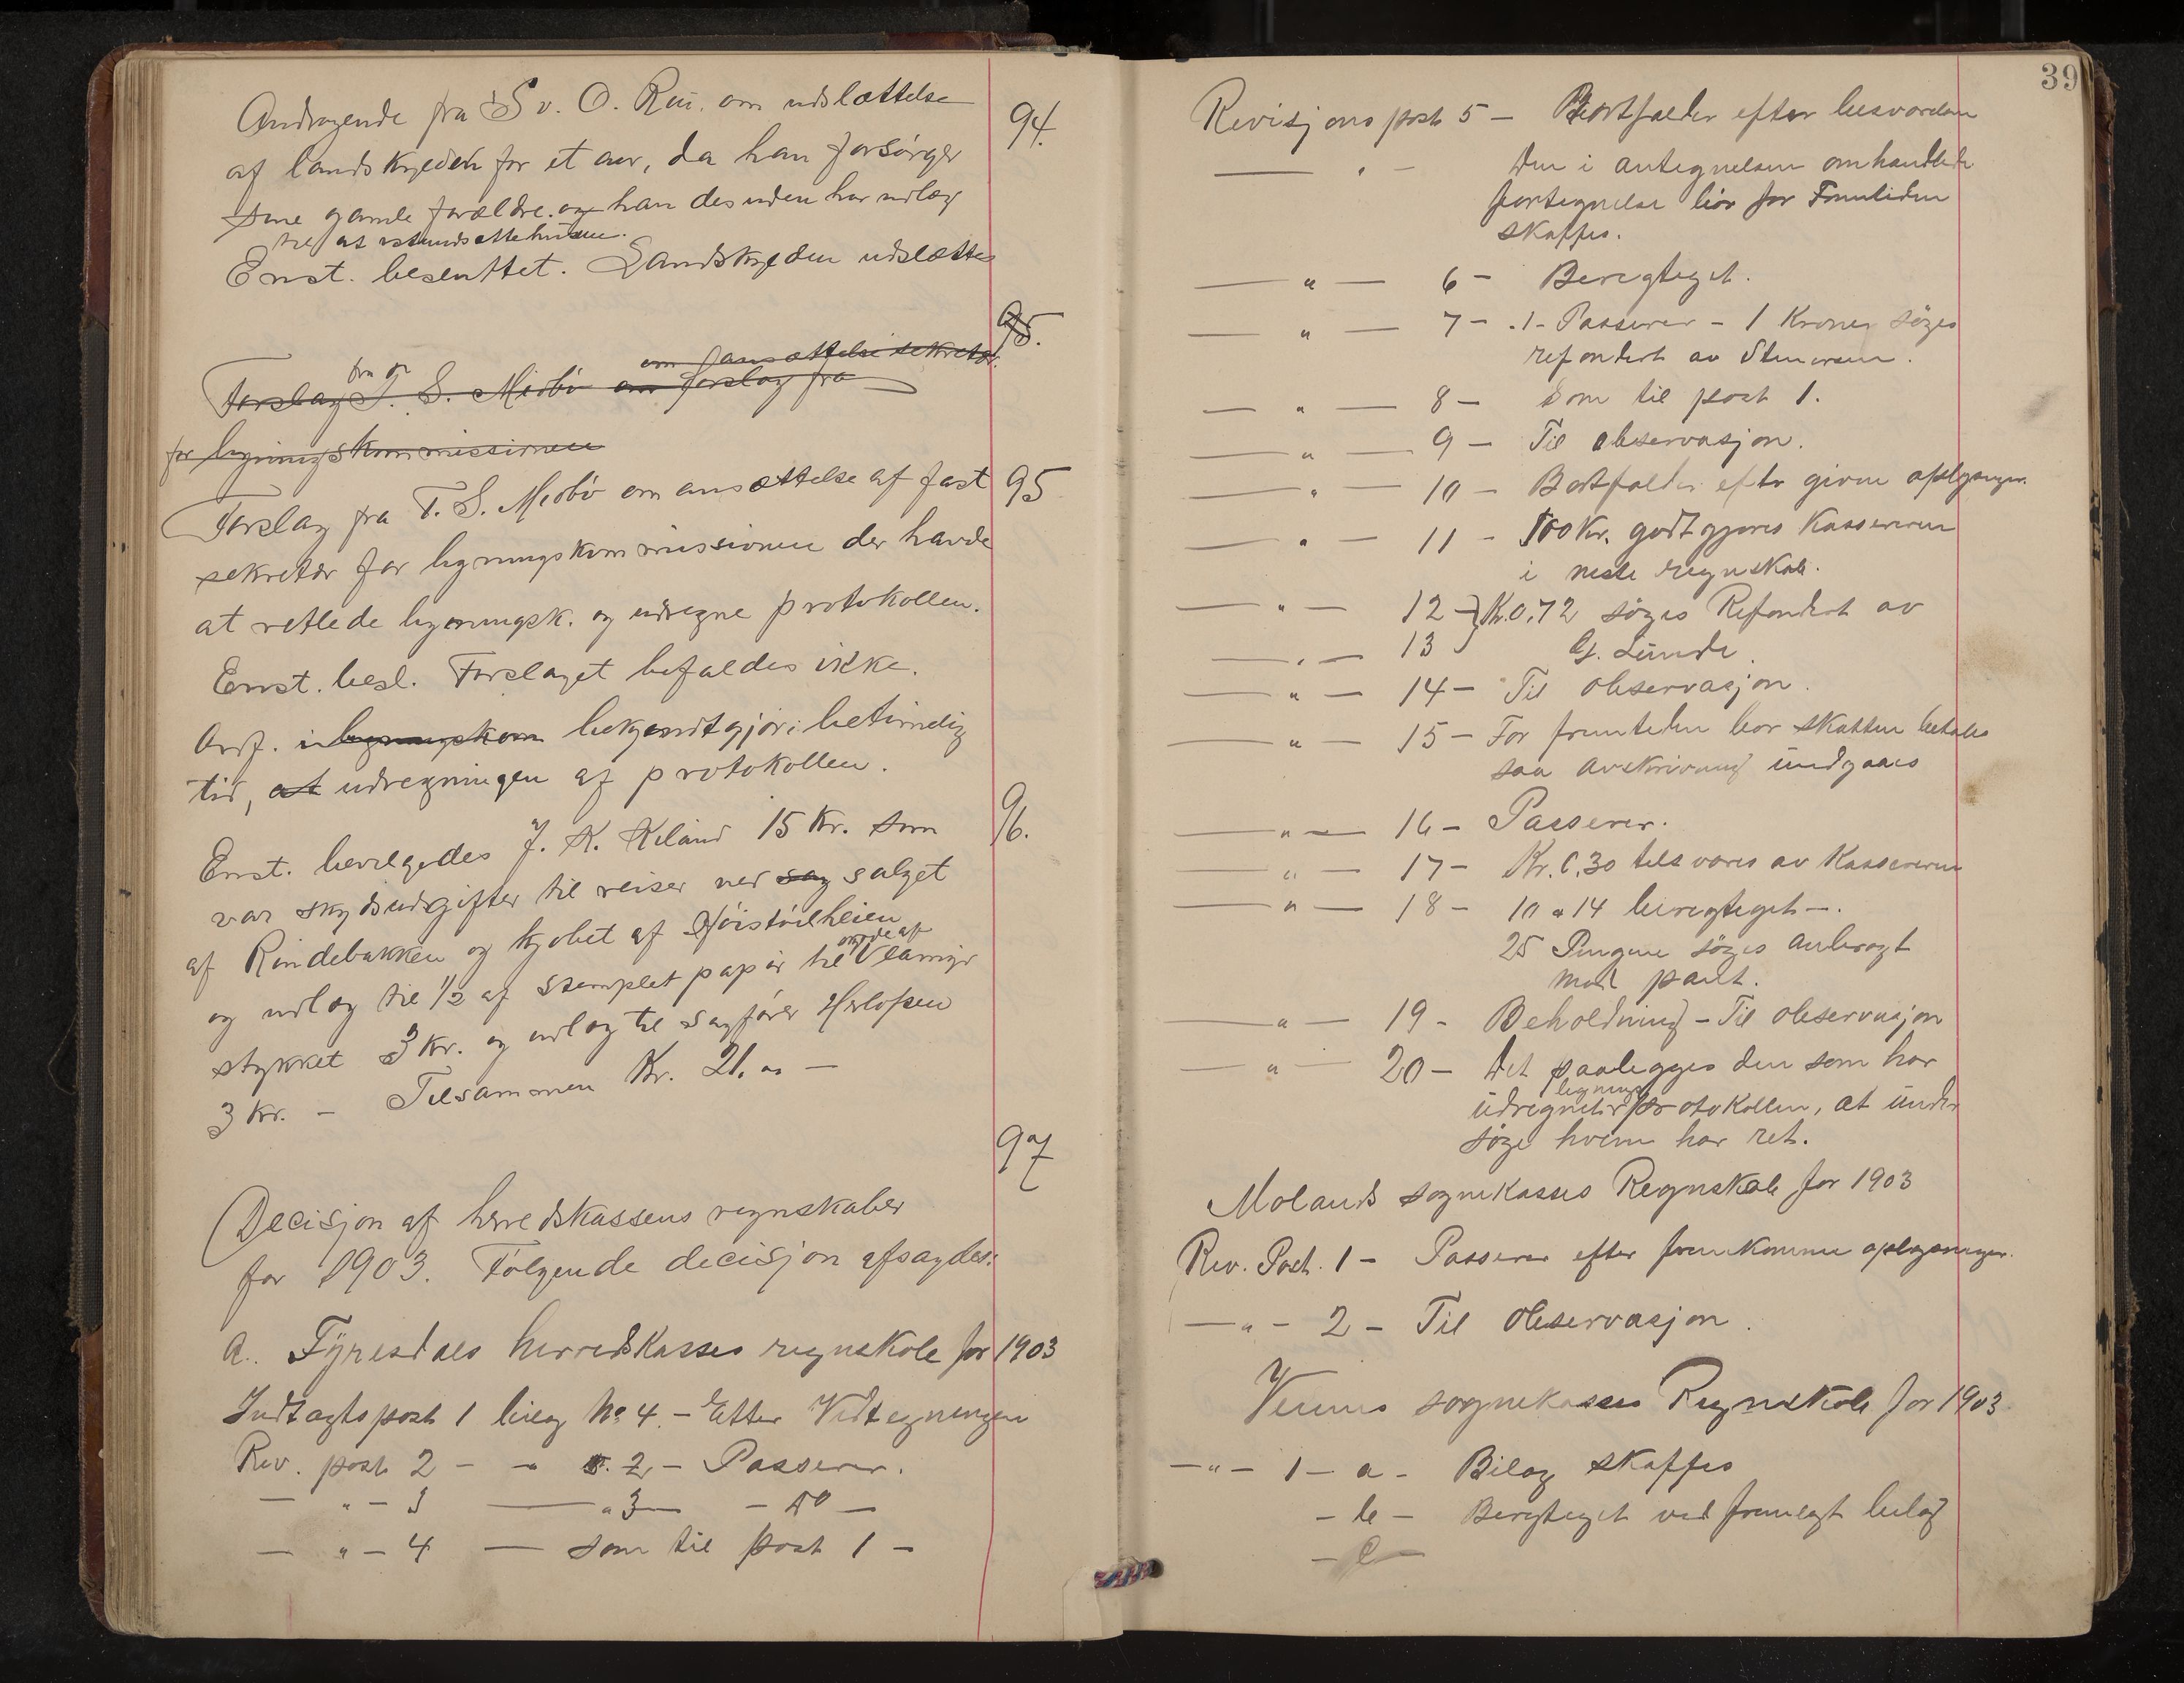 94.
Andragende fra Sv. O. Rui. om udslættelse
af landskylden for et aar, da han forsørger
sine gamle forældre. og han desuden har udlæg
til at istandsætte husene.
Enst. besluttet. Landskylden udslættes
95.
fra og om ansættelse sekretær.
Forslag T. S. Miøbø om forslag fra
for ligningskommissionen
95
Forslag fra T. S. Miøbø om ansættelse af fast
sekretær for ligningskommissionen der havde
at vetlede ligningsk. og udregne protokollen.
Enst. besl. Forslaget bifaldes ikke.
Ordf. i ligningskom bekjendtgjør i betimelig
tid, at udregningen af protokollen.
96.
Enst. bevilgedes J. K. Kiland 15 Kr. som
var skydsudgifter til reiser ved sag salget
af Rindebakken og kjøbet af Høistøilheien
og udlæg til 1/2 af stemplet papir til skjøde af Veamyr
stykket 3 Kr. og udlæg til sagfører Herlofsen
3 Kr. - Tilsammen Kr. 21. "" —
97
Decisjon af herredskassens regnskaber
for 1903. Følgende decisjon afsagdes:
A. Fyresdals herredskasses regnskab for 1903
Indtægtspost 1 bilag No 4. - Efter Vidtegningen
Rev. post 2 - " 2 - Passerer.
— " - 3 — " 3 — - do —
— " - 4 — som til post 1 -
39
Revisjons post 5 — Bortfalder efter besvarelsen
— " — Den i antegnelsen omhandlede
fortegnelse bør for Fremtiden
skaffes.
— " — 6 - Berigtiget.
— " — 7 - .1- Passerer - 1 Krone søges
refondert av Stenersen.
— " — 8 - Som til post 1.
— " — 9 - Til observasjon.
— " — 10 - Bortfalder efter givne oplysninger.
— " — 11 - 100 Kr. godtgjøres Kassereren
i neste regnskab.
— " — 12 - } Kr. 0.72 søges Refondert av
— " — 13 G. Lunde.
— " — 14 - Til observasjon.
— " — 15 - For fremtiden bør skatten betales
saa avskrivning undgaaes
— " — 16 - Passerer.
— " — 17 - Kr. 0.30 tilsvares av Kassereren
— " — 18 - 10 a 14 berigtiget —.
25 Pengene søges anbragt
mod pant.
— " — 19 - Beholdning - Til observasjon
— " — 20 - Det paalegges den som har
udregnet ligningsprotokollen, at under
søge hvem har ret.
Molands sognekasses Regnskab for 1903
Rev. Post. 1 - Passerer efter fremkomne oplysninger.
— " - 2 - Til observasjon.
Veums sognekasses Regnskab for 1903
— " - 1 - a - Bilag skaffes
- b - Berigtiget ved fremlagt bilag
- c -